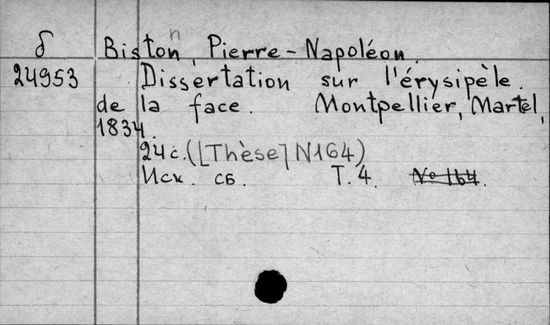 б Biston, Pierre-Napoléon.
n
24953 Dissertation sur l'érysipèle
de la face. Montpellier, Martel,
1834.
24 c. ([Thèse] N164)
Иск. сб. Т. 4. № 164.